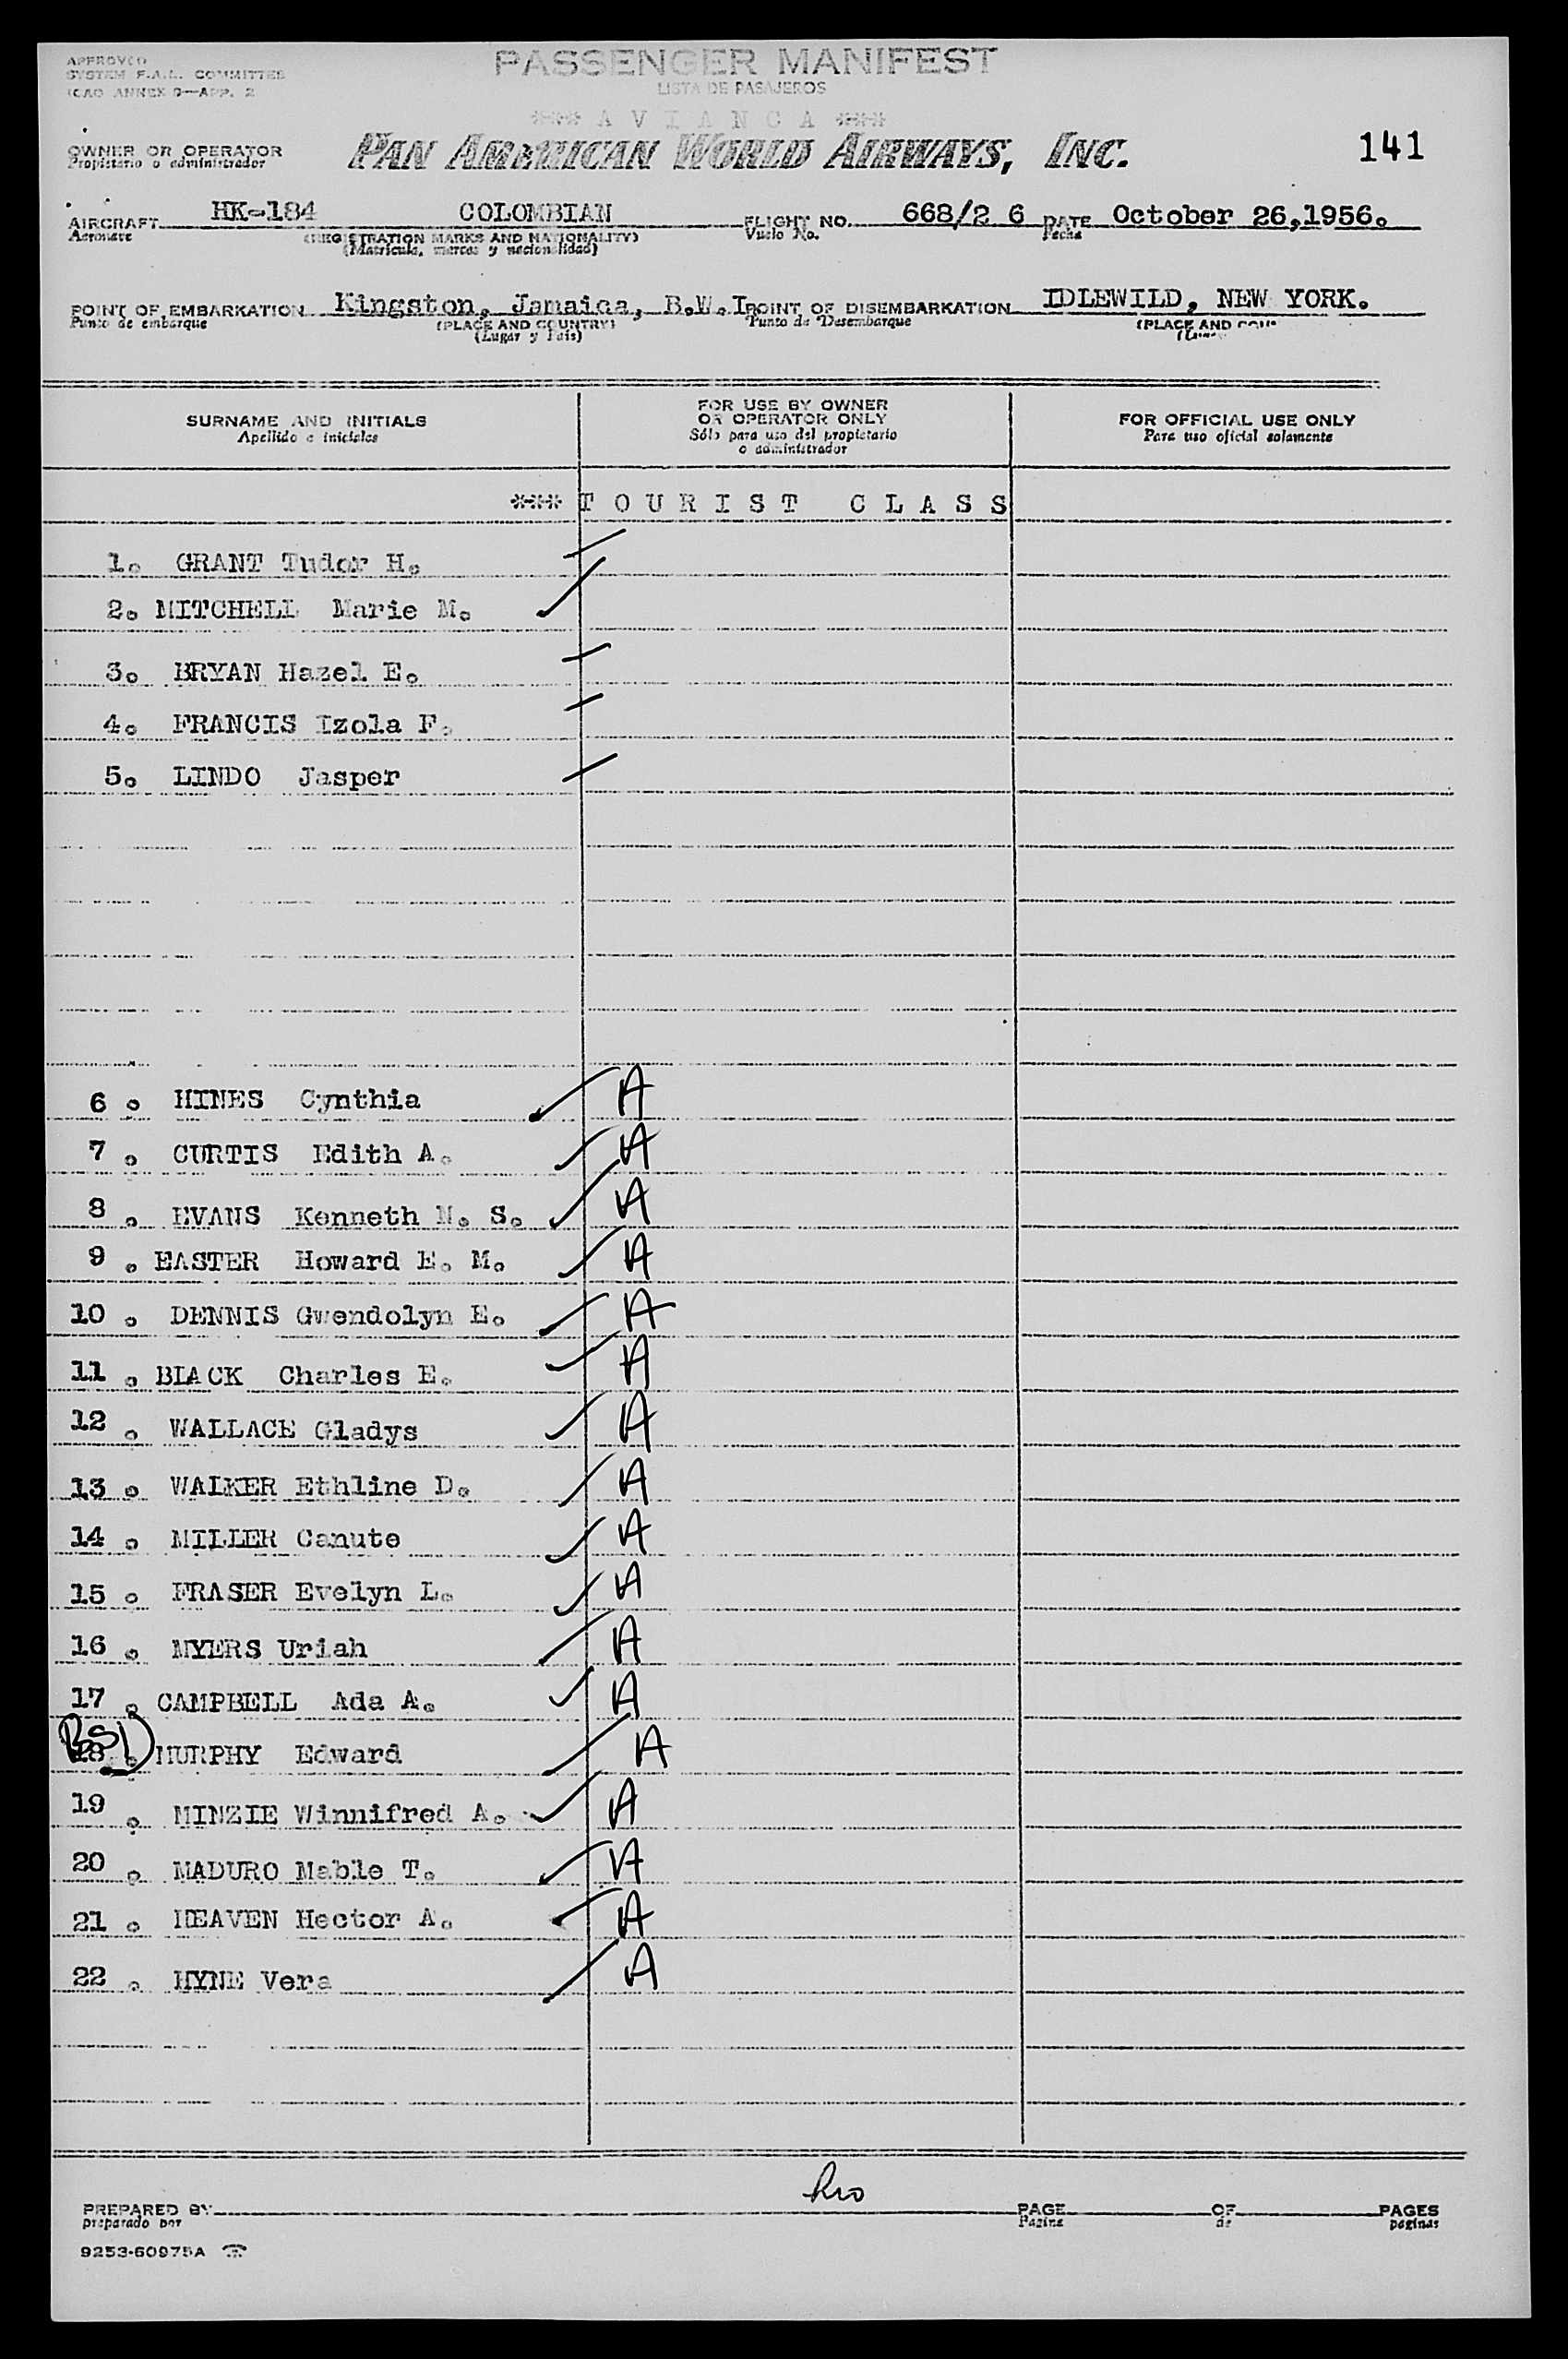 APPROVED
SYSTEM F.A.L. COMMITTEE
ICAO ANNEX 9—APP. 2
PASSENGER MANIFEST
LISTA DE PASAJEROS
*** A V I A N C A ***
OWNER OR OPERATOR
Propietario o administrador
PAN AMERICAN WORLD AIRWAYS, INC.
141
AIRCRAFT HK-184 COLOMBIAN FLIGHT NO. 668/2 6 DATE October 26,1956.
Aeronave (REGISTRATION MARKS AND NATIONALITY) Vuelo No. Fecha
(Matricula, marcas y nacionalidad)
POINT OF EMBARKATION Kingston, Jamaica, B.W.I. POINT OF DISEMBARKATION IDLEWILD, NEW YORK.
Punto de embarque (PLACE AND COUNTRY) Punto de Desembarque (PLACE AND
(Lugar y Pais)
SURNAME AND INITIALS
Apellido e iniciales
FOR USE BY OWNER
OR OPERATOR ONLY
Sólo para uso del propietario
o administrador
FOR OFFICIAL USE ONLY
Para uso oficial solamente
*** T O U R I S T C L A S S
1. GRANT Tudor H.
2. MITCHELL Marie M.
3. BRYAN Hazel E.
4. FRANCIS Izola F.
5. LINDO Jasper
6 . HINES Cynthia A
7 . CURTIS Edith A. A
8 . EVANS Kenneth N. S. A
9 . EASTER Howard E. M. A
10 . DENNIS Gwendolyn E. A
11 . BLACK Charles E. A
12 . WALLACE Gladys A
13 . WALKER Ethline D. A
14 . MILLER Canute A
15 . FRASER Evelyn L. A
16 . MYERS Uriah A
17 . CAMPBELL Ada A. A
BSI
18 . MURPHY Edward A
19 . MINZIE Winnifred A. A
20 . MADURO Mable T. A
21 . HEAVEN Hector A. A
22 . HYNE Vera A
PREPARED BY PAGE OF PAGES
preparado por Pagina de paginas
9253-60975A